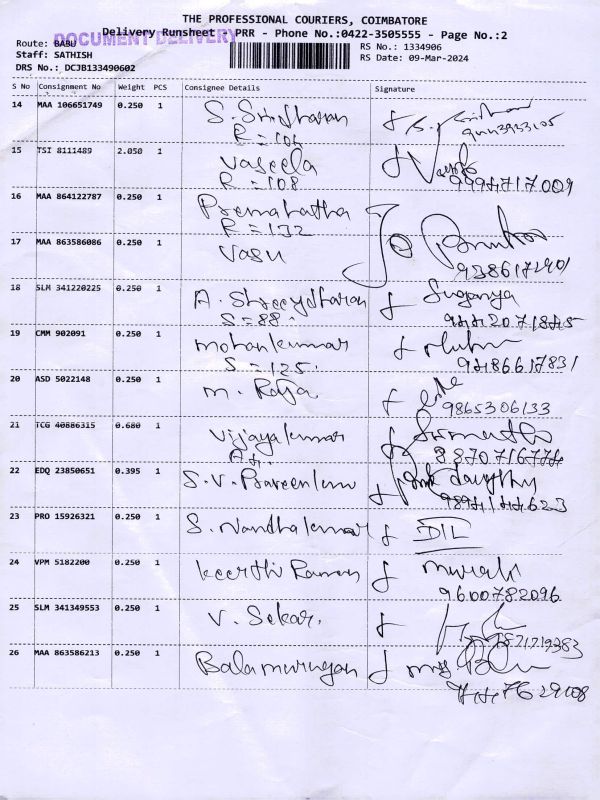 THE PROFESSIONAL COURIERS, COIMBATORE
DOCUMENT DELIVERY
Delivery Runsheet - PRR - Phone No.:0422-3505555 - Page No.:2
Route: BABU
Staff: SATHISH
DRS No.: DCJB133490602
RS No.: 1334906
RS Date: 09-Mar-2024
S No Consignment No Weight PCS Consignee Details Signature
14 MAA 106651749 0.250 1 S. Sridharan
R = 104
15 TSI 8111489 2.050 1 Vaseela
R = 108 9994717009
16 MAA 864122787 0.250 1 Premalatha
R = 132
17 MAA 863586086 0.250 1 Vasu
18 SLM 341220225 0.250 1 A. Shreeydharan Suganya
S = 88.
19 CMM 902091 0.250 1 mohankumar
S = 125. 9486617831
20 ASD 5022148 0.250 1 m. Raja
9865306133
21 TCG 40886315 0.680 1 Vijayakumar
22 EDQ 23850651 0.395 1 S.V. Praveenkumar
23 PRO 15926321 0.250 1 S. Nandhakumar DIL
24 VPM 5182200 0.250 1 Keerthi Raman murali
9600782096
25 SLM 341349553 0.250 1 V. Sekar.
26 MAA 863586213 0.250 1 Balamurugan